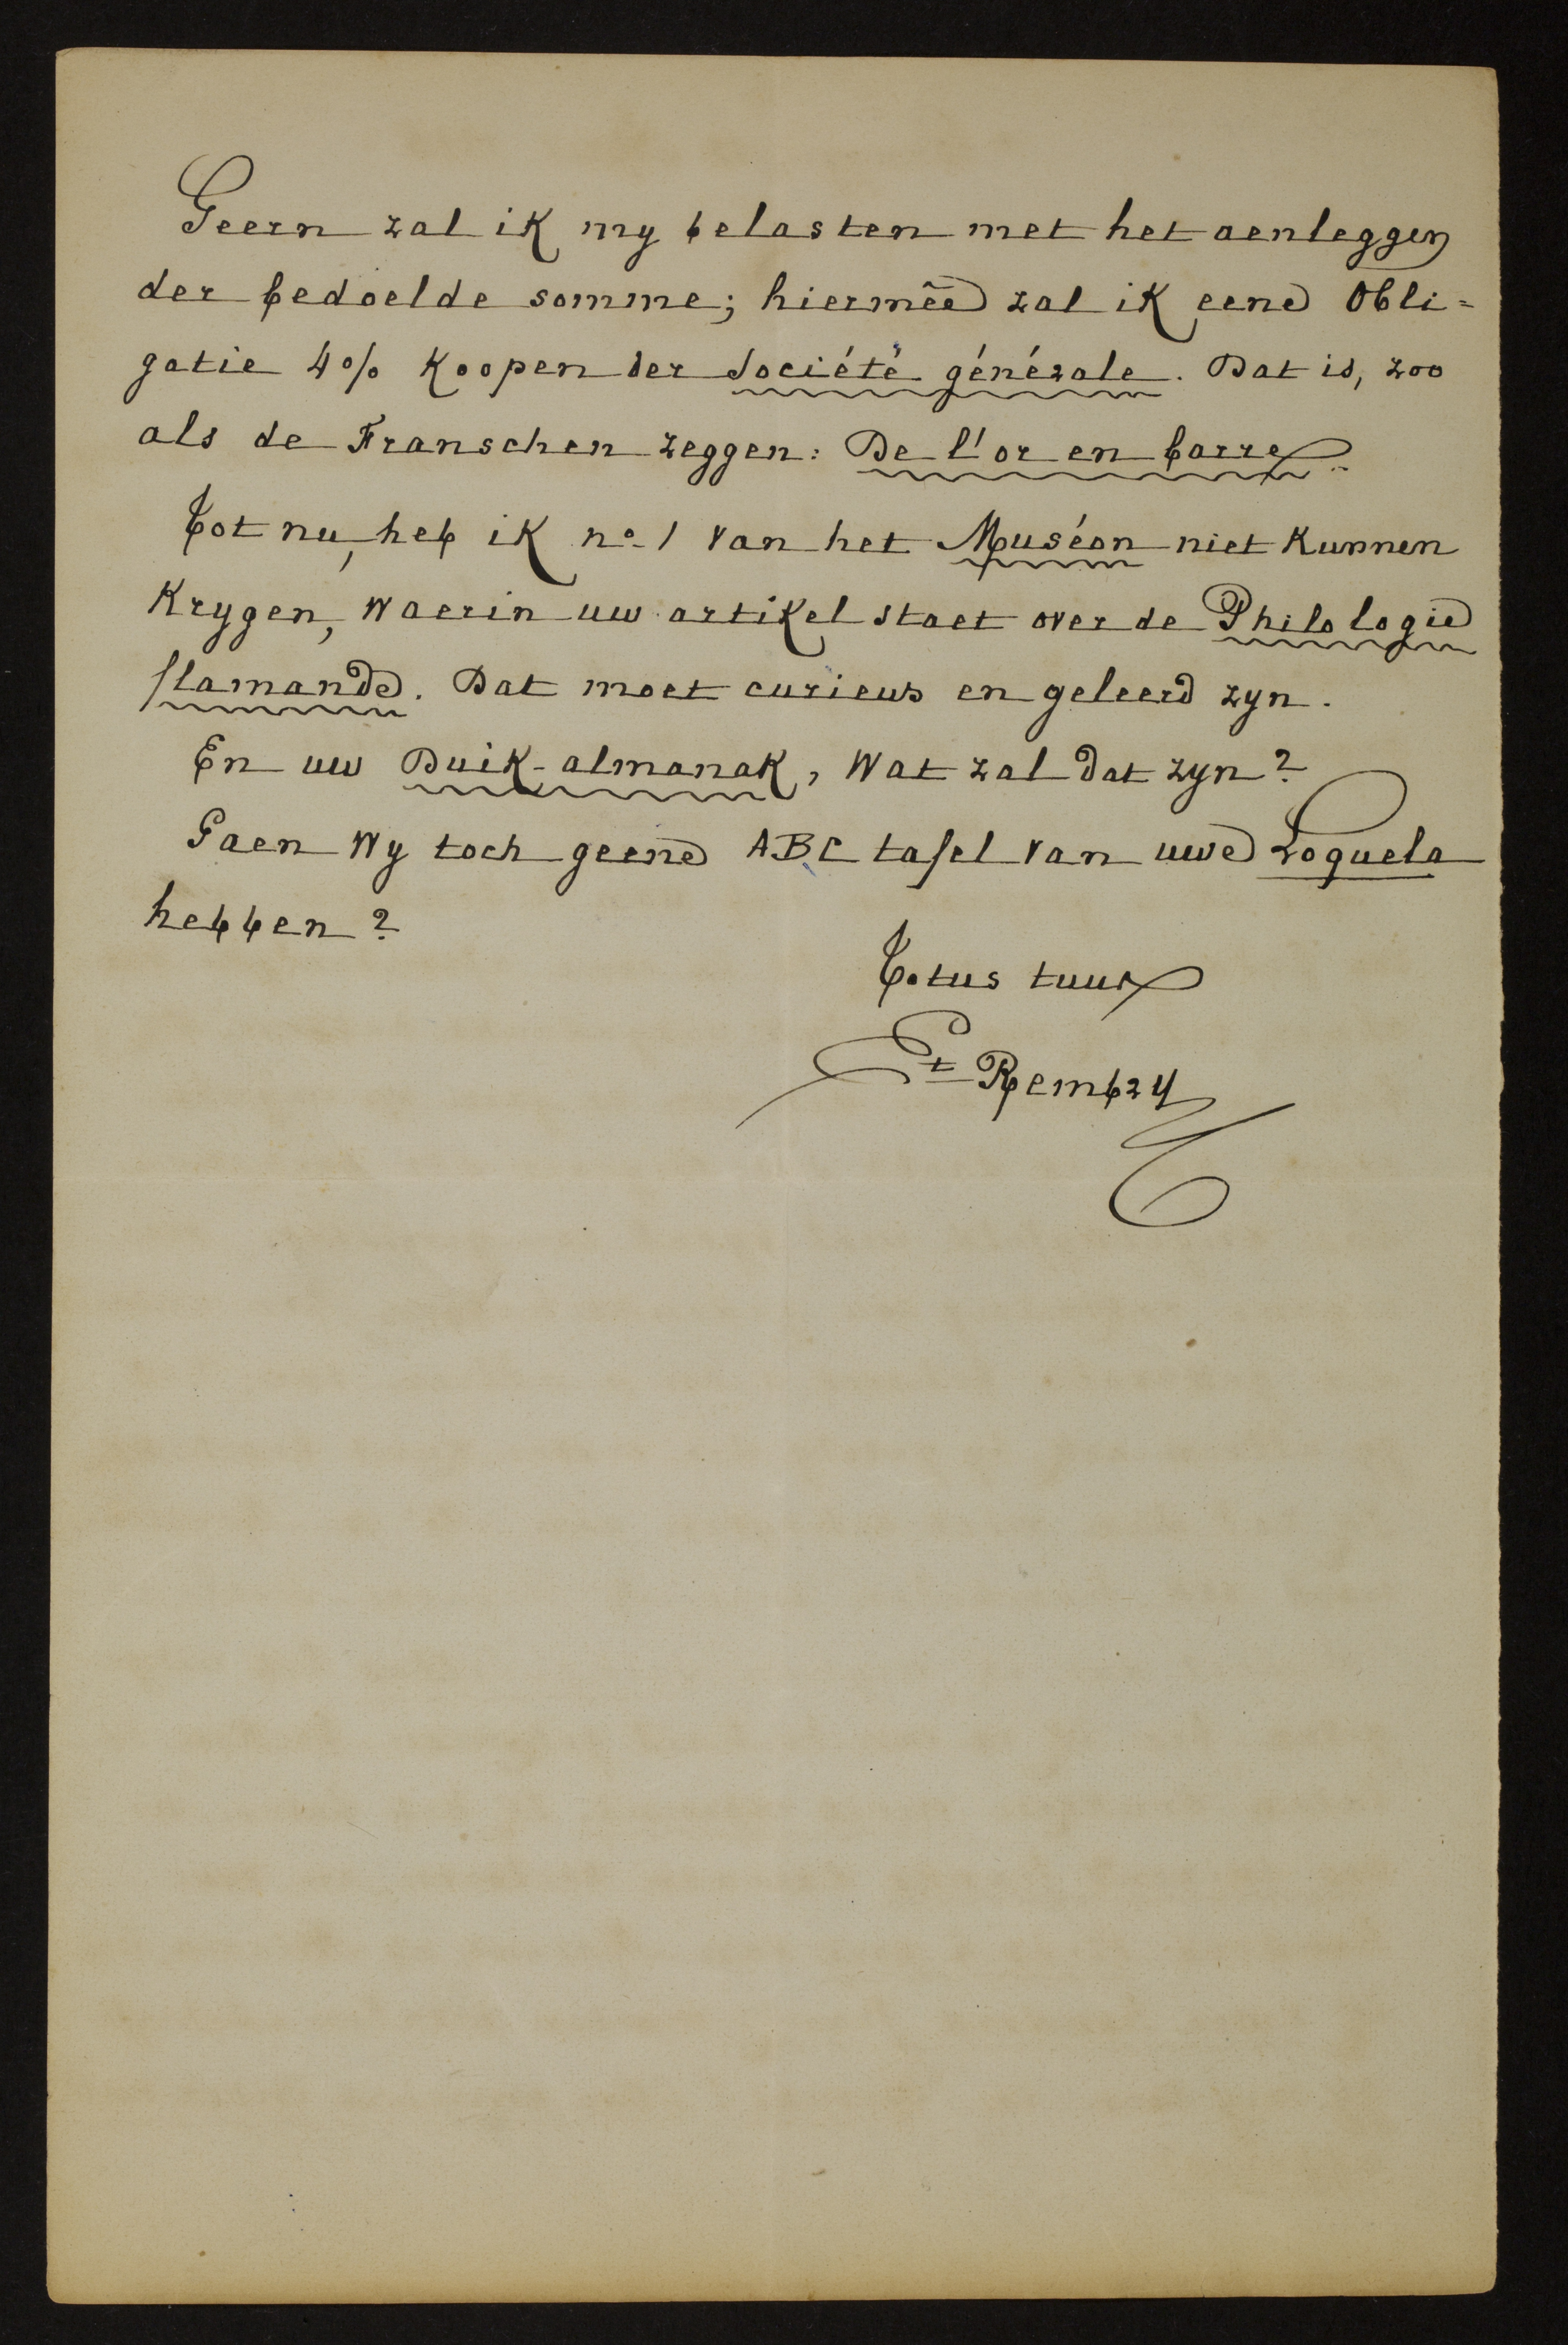 Geern zal ik my belasten met het aenleggen
der bedoelde somme; hiermêe zal ik eene Obli=
gatie 4% koopen der Société générale. Dat is, zoo
als de Franschen zeggen: De l'or en barre.
Tot nu, heb ik nº 1 van het Muséon niet kunnen
krygen, waerin uw artikel staet over de Philologie
flamande. Dat moet curieus en geleerd zyn.
En uw Duik-almanak, wat zal dat zyn?
Gaen wy toch geene ABC tafel van uwe Loquela
hebben?
Totus tuus
Et Rembry